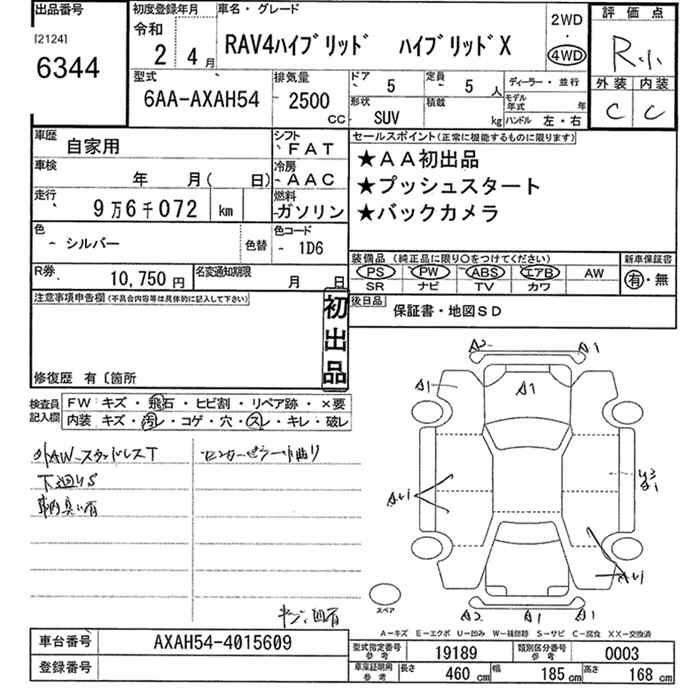 出品番号
[2124]
6344
初度登録年月
令和
2 4月
車名・グレード
RAV4ハイブリッド ハイブリッドX
2WD
・
4WD
評価点
R小
外装 内装
C C
型式
6AA-AXAH54
排気量
2500
CC
ドア
5
定員
5 人
形状
SUV
積載
kg
ディーラー・並行
モデル年式 年
ハンドル 左・右
車歴
自家用
シフト
FAT
車検
年 月( 日)
冷房
AAC
走行
9万6千072 km
燃料
ガソリン
色
シルバー
色替
色コード
1D6
R券
10,750円
名変通知期限
月 日
セールスポイント(正常に機能するものに限ります)
★AA初出品
★プッシュスタート
★バックカメラ
装備品(純正品に限り○をつけてください)
PS PW ABS エアB AW
SR ナビ TV カワ
新車保証書
有・無
後日品
保証書・地図SD
注意事項申告欄(不具合内容等は具体的に記入して下さい)
初出品
修復歴 有〔箇所
検査員記入欄
FW キズ・飛石・ヒビ割・リペア跡・×要
内装 キズ・汚レ・コゲ・穴・スレ・キレ・破レ
外AW スタッドレスT
下廻りS
センターピラー
A2 A1
A1 A1
A1
A2 A1 A2
スペア
A-キズ E-エクボ U-凹み W-補修跡 S-サビ C-腐食 XX-交換済
車台番号
AXAH54-4015609
登録番号
型式指定番号
参考
19189
類別区分番号
参考
0003
車庫証明用
参考
長さ
460 cm
幅
185 cm
高さ
168 cm